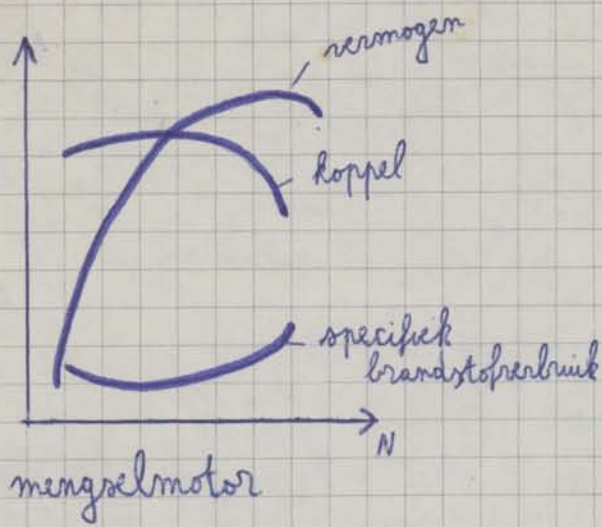 vermogen
koppel
specifiek
brandstofverbruik
N
mengselmotor